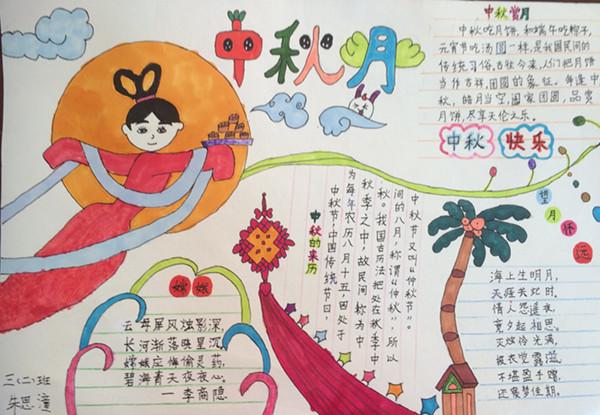 中秋月
中秋赏月
中秋吃月饼,和端午吃粽子,
元宵节吃汤圆一样,是我国民间的
传统习俗,古往今来,人们把月饼
当作吉祥,团圆的象征。每逢中
秋,皓月当空,阖家团圆,品赏
月饼,尽享天伦之乐。
中秋 快乐
中秋节又叫“仲秋节”。
间的八月,称谓“仲秋”,所
秋。我国古历法把处在秋季中
秋季之中,故民间称为中
为每年农历八月十五,四处于
中秋节,中国传统节日,
中秋的来历
望月怀远
海上生明月,
天涯共此时。
情人怨遥夜,
竟夕起相思。
灭烛怜光满,
披衣觉露滋。
不堪盈手赠,
还寝梦佳期。
嫦娥
云母屏风烛影深,
长河渐落晓星沉。
嫦娥应悔偷灵药,
碧海青天夜夜心。
—李商隐
三(二)班
朱思潼